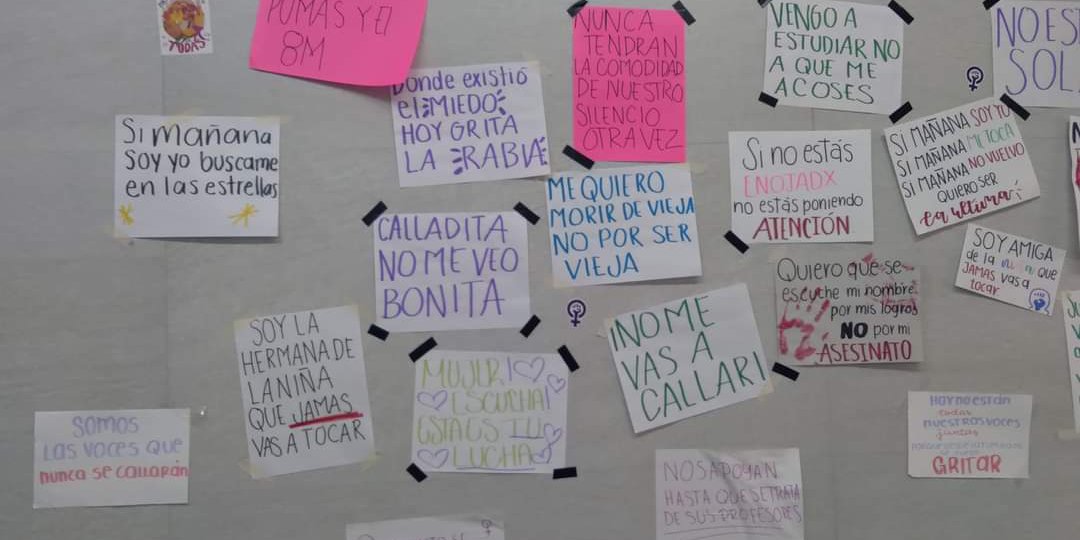 TODAS
PUMAS Y EL
8M
Donde existió
el MIEDO
HOY GRITA
LA RABIA
NUNCA
TENDRAN
LA COMODIDAD
DE NUESTRO
SILENCIO
OTRA VEZ
VENGO A
ESTUDIAR NO
A QUE ME
ACOSES
NO EST
SOL
Si mañana
soy yo buscame
en las estrellas
CALLADITA
NO ME VEO
BONITA
ME QUIERO
MORIR DE VIEJA
NO POR SER
VIEJA
Si no estás
ENOJADX
no estás poniendo
ATENCIÓN
SI MAÑANA SOY YO
SI MAÑANA ME TOCA
SI MAÑANA NO VUELVO
QUIERO SER
la ultima
SOY AMIGA
de la que
JAMAS vas a
tocar
Quiero que se
escuche mi nombre
por mis logros
NO por mi
ASESINATO
SOY LA
HERMANA DE
LA NIÑA
QUE JAMAS
VAS A TOCAR
MUJER!
ESCUCHA!
ESTA ES TU
LUCHA
¡NO ME
VAS A
CALLAR!
SOMOS
LAS VOCES QUE
nunca se callarán
NOS APOYAN
HASTA QUE SE TRATA
DE SUS PROFESORES
Hoy no están
todas
nuestras voces
juntas
GRITAR